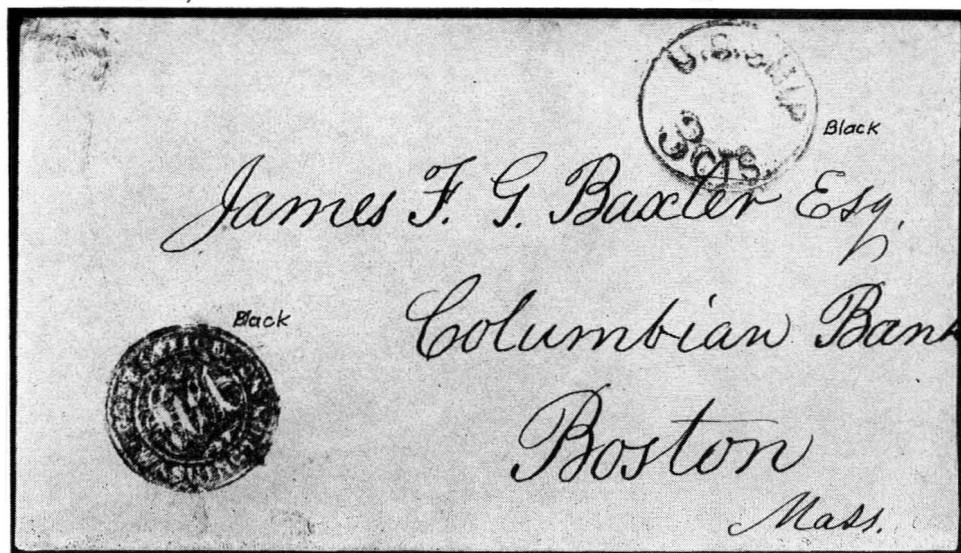 U.S.SHIP
3 CTS.
Black
James F. G. Baxter Esq.
Black
Columbian Bank
Boston
Mass.